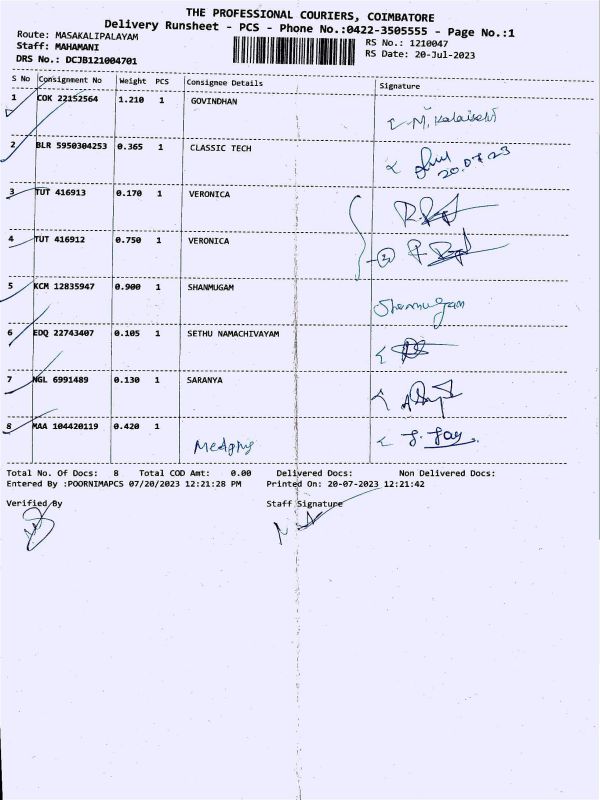 THE PROFESSIONAL COURIERS, COIMBATORE
Delivery Runsheet - PCS - Phone No.:0422-3505555 - Page No.:1
Route: MASAKALIPALAYAM
Staff: MAHAMANI
DRS No.: DCJB121004701
RS No.: 1210047
RS Date: 20-Jul-2023
S No Consignment No Weight PCS Consignee Details Signature
1 COK 22152564 1.210 1 GOVINDHAN M. Kalaiselvi
2 BLR 5950304253 0.365 1 CLASSIC TECH 20.07.23
3 TUT 416913 0.170 1 VERONICA
4 TUT 416912 0.750 1 VERONICA
5 KCM 12835947 0.900 1 SHANMUGAM Shanmugam
6 EDQ 22743407 0.105 1 SETHU NAMACHIVAYAM
7 NGL 6991489 0.130 1 SARANYA
8 MAA 104420119 0.420 1
Total No. Of Docs: 8 Total COD Amt: 0.00 Delivered Docs: Non Delivered Docs:
Entered By :POORNIMAPCS 07/20/2023 12:21:28 PM Printed On: 20-07-2023 12:21:42
Verified By Staff Signature